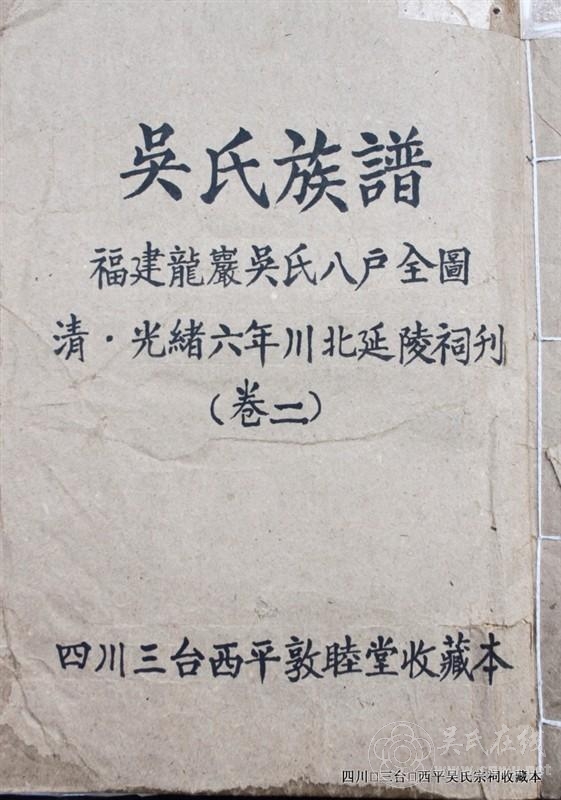 吳氏族譜
福建龍巖吳氏八户全圖
清·光緒六年川北延陵祠刋
（卷二）
四川三台西平敦睦堂收藏本
吴氏在线
四川□三台□西平吴氏宗祠收藏本